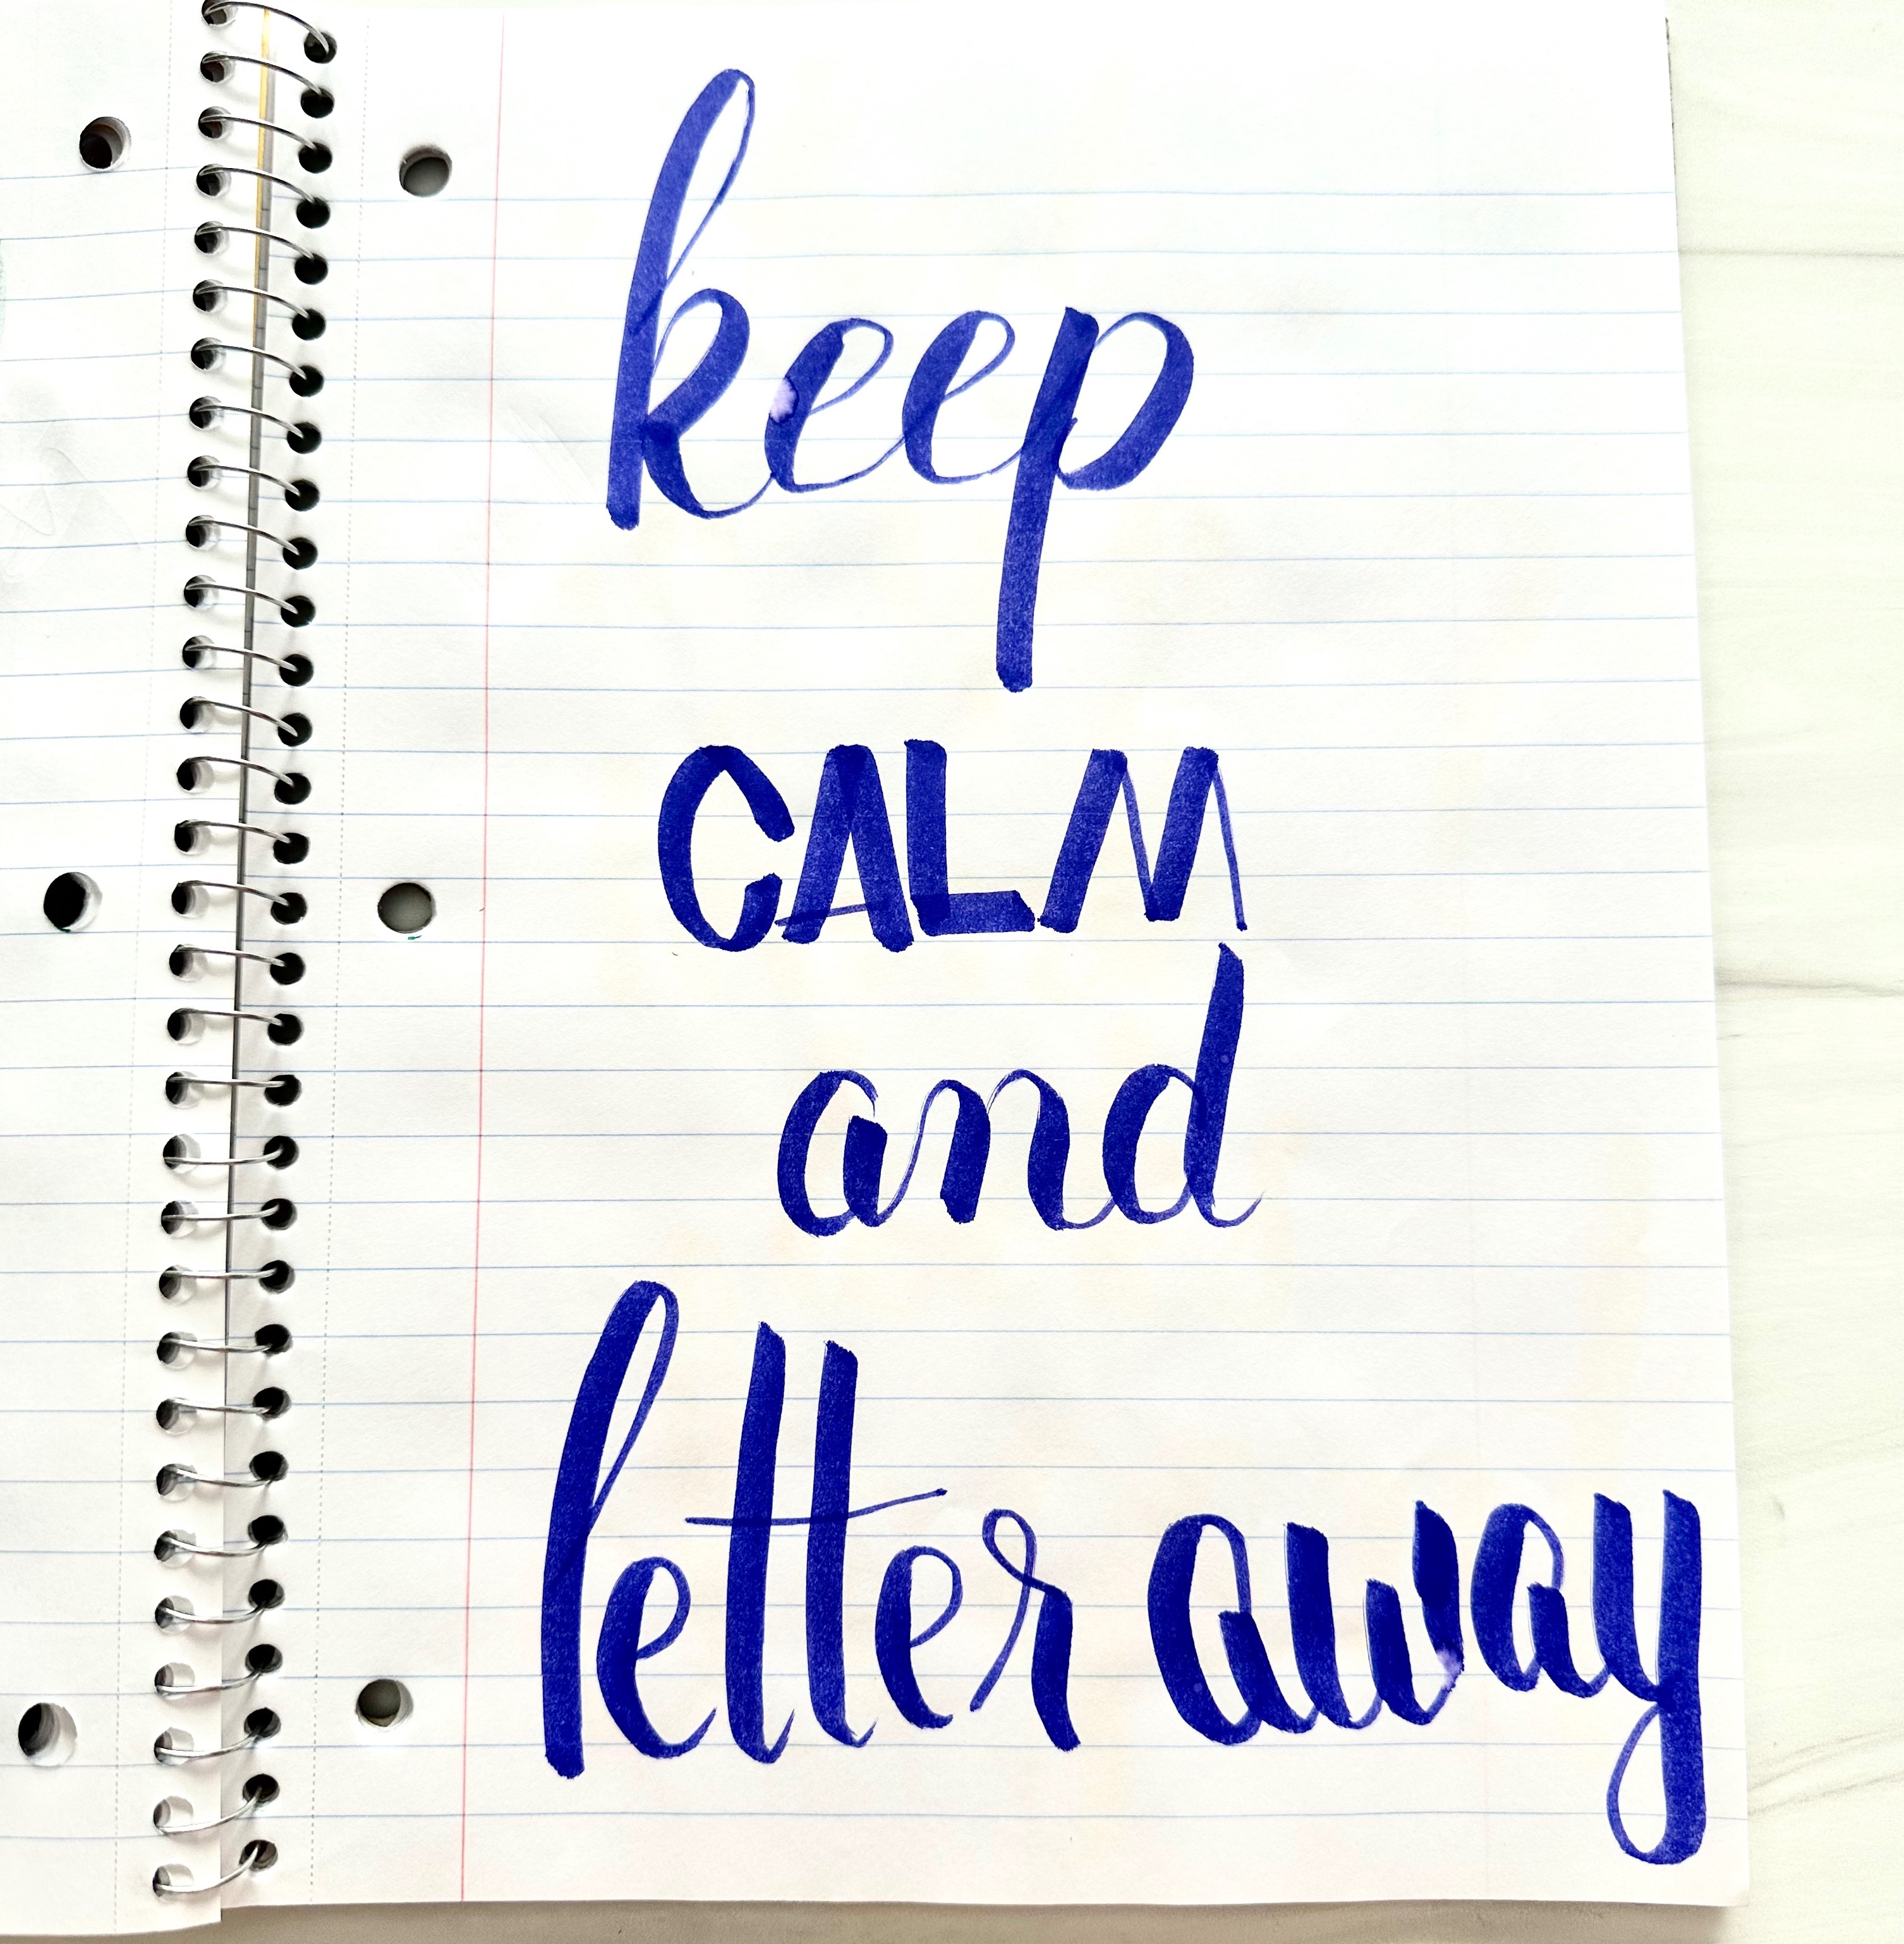 keep
CALM
and
letter away